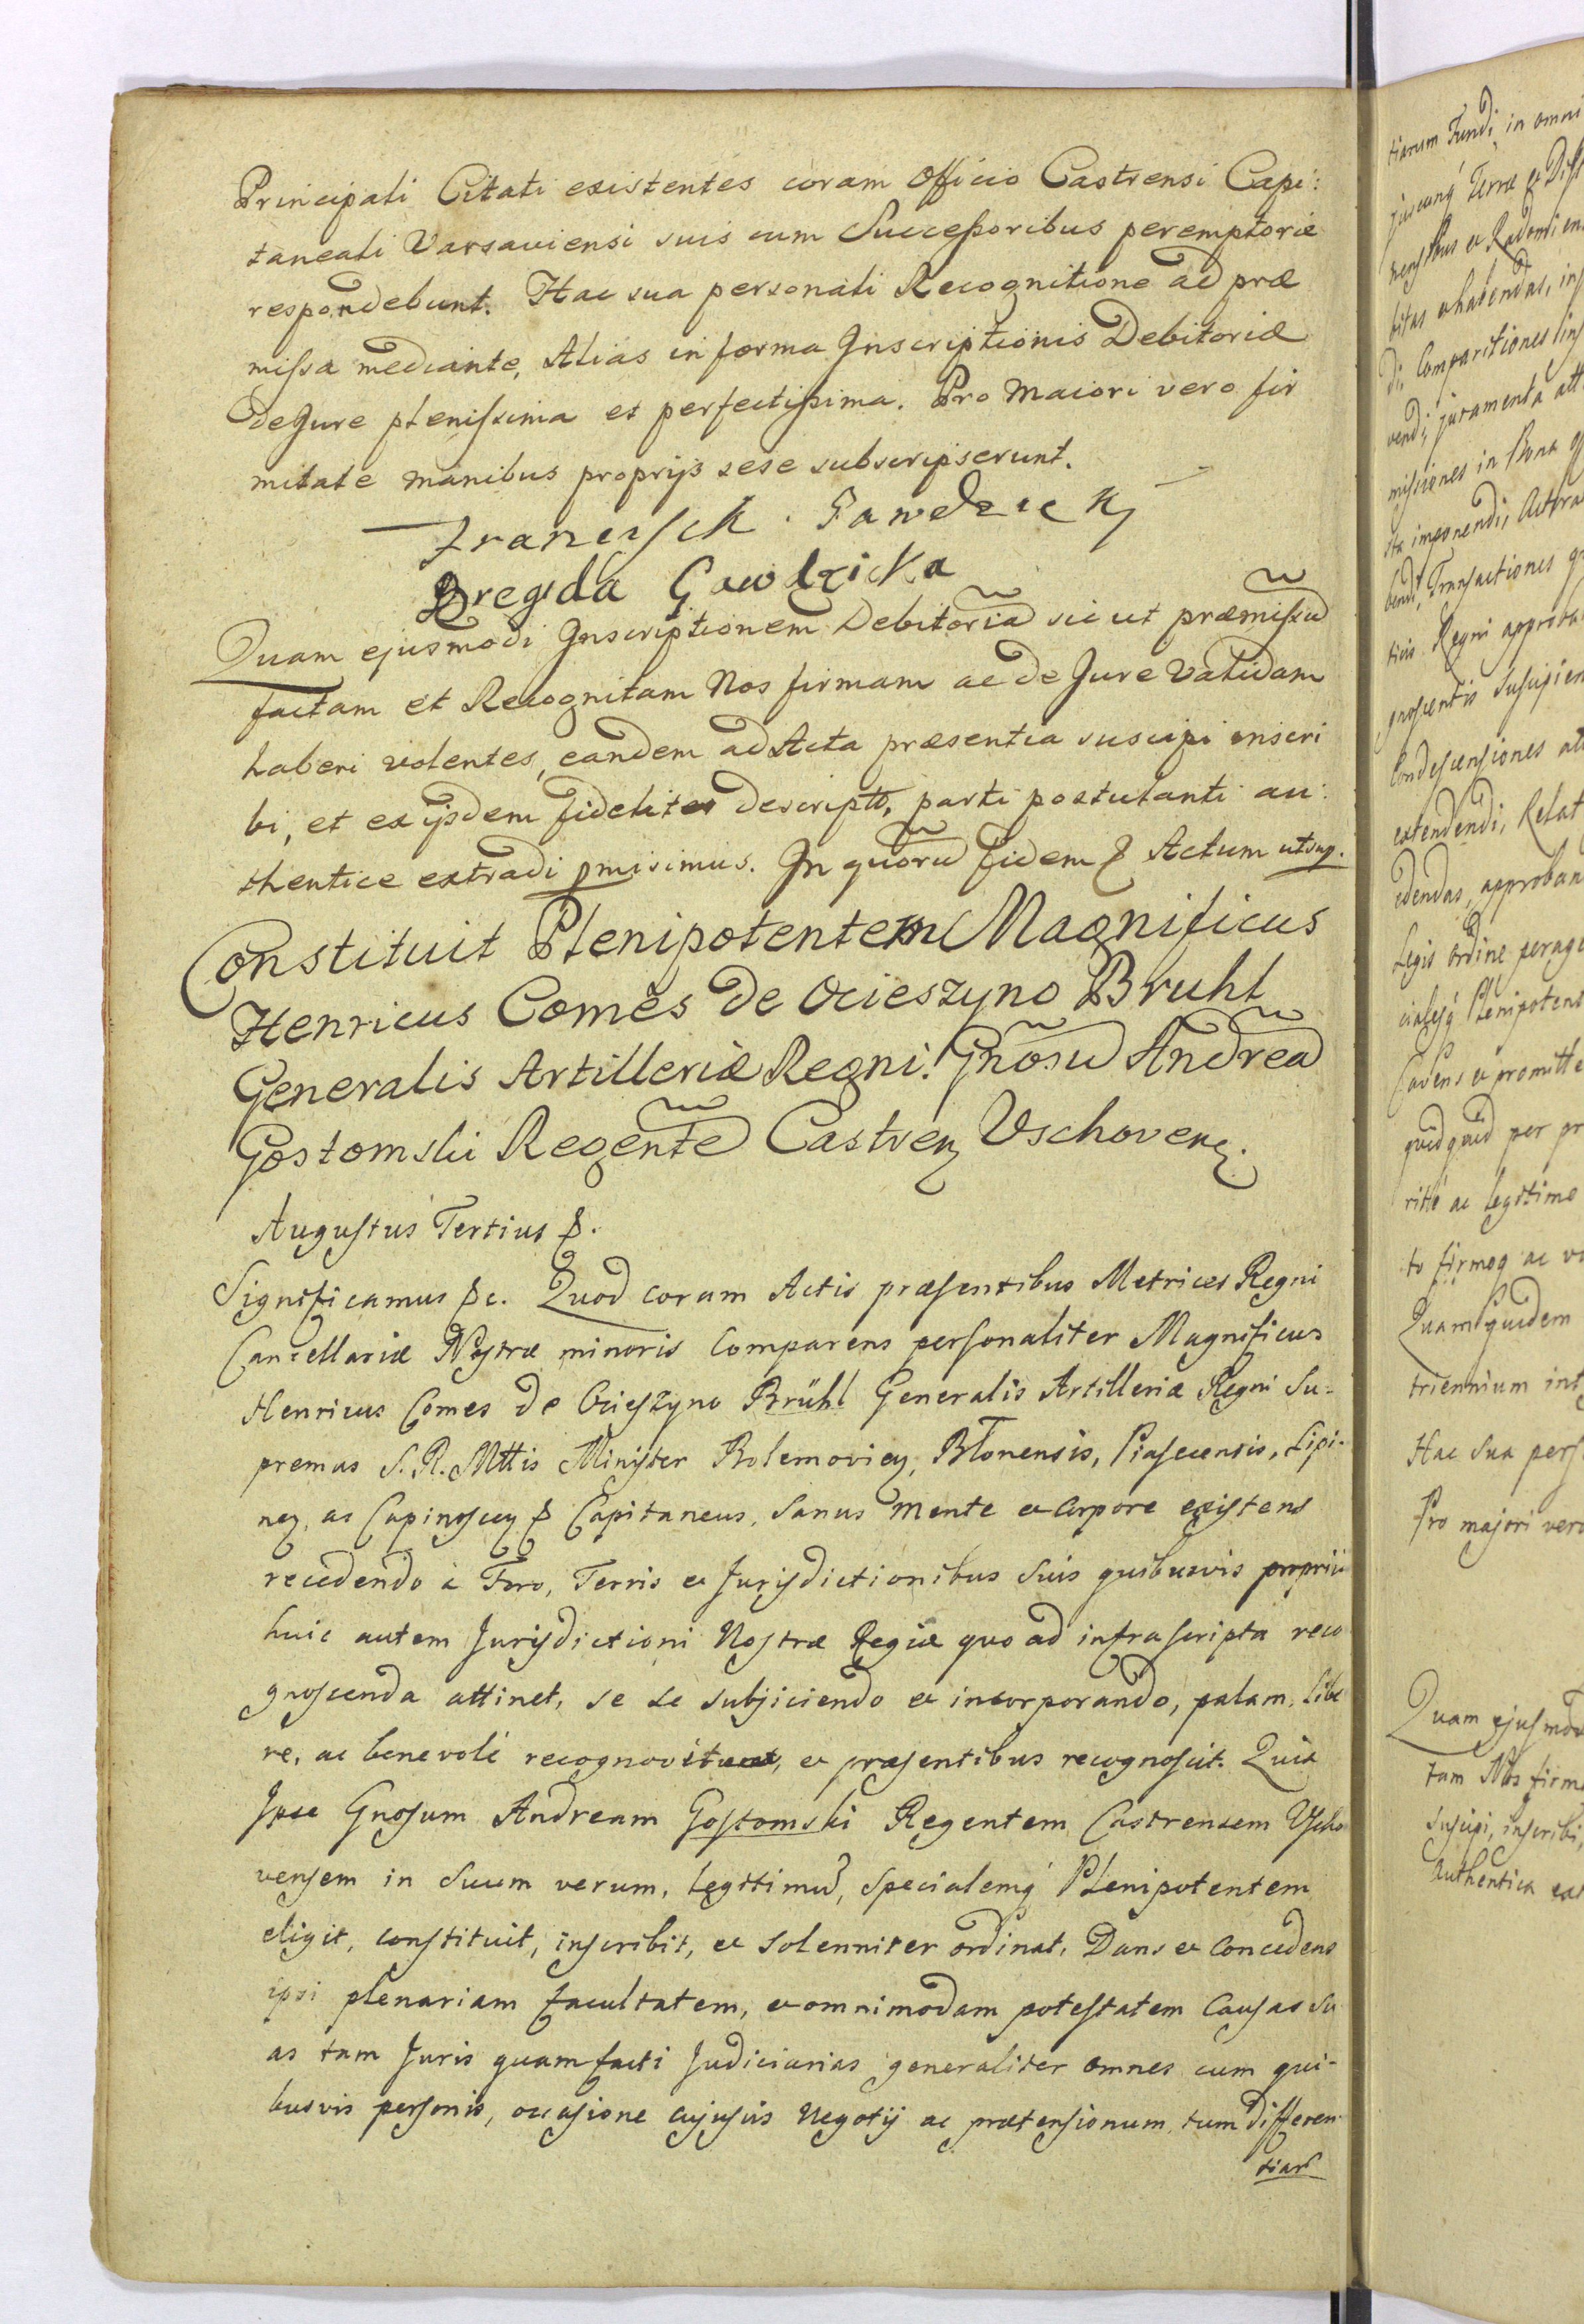 Principali Citati existentes coram Officio Castrensi Capi:
taneali Varsaviensi suis cum Successoribus peremptorie
respondebunt. Hac sua personali Recognitione ad præ
missa mediante, Alias in forma Inscriptionis Debitoriæ
de Jure plenissima et perfectissima. Pro Maiori vero fir
mitate manibus proprijs sese subscripserunt.
Francisek Gawdzicky
Bregida Gawdzicka
Quam ejusmodi Inscriptionem Debitoriã sic ut præmissũ
factam et Recognitam Nos firmam ac de Jure Validam
haberi volentes, eandem ad Acta præsentia suscipi inscri
bi, et ex ijsdem fideliter descript, parti postulanti au:
thentice extradi pmisimus. In quorũ fidem & Actum utsup.
Constituit Plenipotentem Magnificus
Henricus Comes de Ocieszyno Bruhl
Generalis Artilleriæ Regni. Gnõsũ Andreã
Gostomski Regentẽ Castren Vschoven.
Augustus Tertius &.
Significamus &c. Quod coram Actis præsentibus Metrices Regni
Cancellariæ Nostræ minoris Comparens personaliter Magnificus
Henricus Comes de Ocieszyno Brühl Generalis Artilleriæ Regni Su-
premus S. R. Mttis Minister Bolemovien, Błonensis, Piasecensis, Lipi-
nen, ac Capinoscen & Capitaneus, Sanus mente et Corpore existens
recedendo à Foro, Terris et Jurisdictionibus Suis quibusvis proprijs
huic autem Jurisdictioni Nostræ Regiæ quo ad infrascripta reco
gnoscenda attinet, se se subjiciendo et incorporando, palam, libe
re, ac benevole recognovit, et præsentibus recognoscit. Quia
Ipse Gnosum Andream Gostomski Regentem Castrensem Vscho
vensem in Suum verum, legitimũ, specialemq Plenipotentem
eligit, constituit, inscribit, et Solenniter ordinat, Dans et Concedens
ipsi plenariam facultatem, et omnimodam potestatem Causas Su
as tam Juris quam facti Judiciarias generaliter omnes cum qui-
busvis personis, occasione cujusvis Negotij ac prætensionum, tum differen
tiarũ
tiarum Fundi in omni
juscunq Terræ et Dist
bitas et habendas, in
di, Comparitiones
vendi, juramenta att
missiones in Bona
imponendi,
Transactiones
Regni approba
gnoscentis suscipien
Condescensiones
extendendi, Relat
edendas, approban
Legis Ordine perage
cialesq Plenipotent
Cavens et promitte
quidquid per pr
ritte ac legitime
to firmoq ac
Quam quidem
triennium
Hac Sua pers
Pro majori vero
Quam ejusmodi
tam Nos firm
suscipi, inscribi,
Authentica